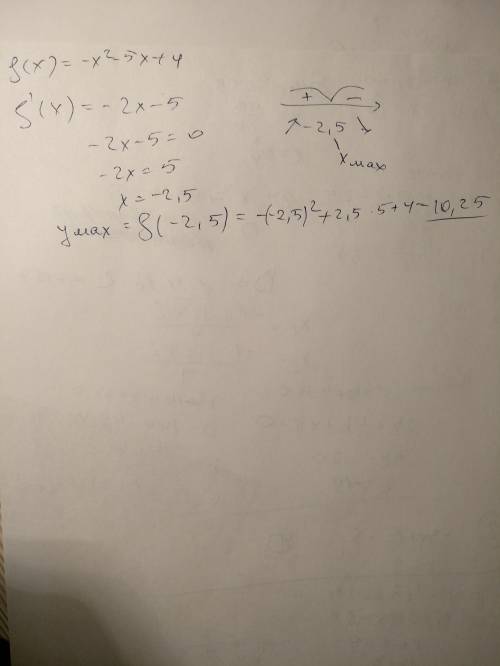 f(x) = -x² - 5x + 4
f'(x) = -2x - 5
-2x - 5 = 0
-2x = 5
x = -2,5
+ -
↗ -2,5 ↘
x мах
y мах = f(-2,5) = -(-2,5)² + 2,5 · 5 + 4 = 10,25